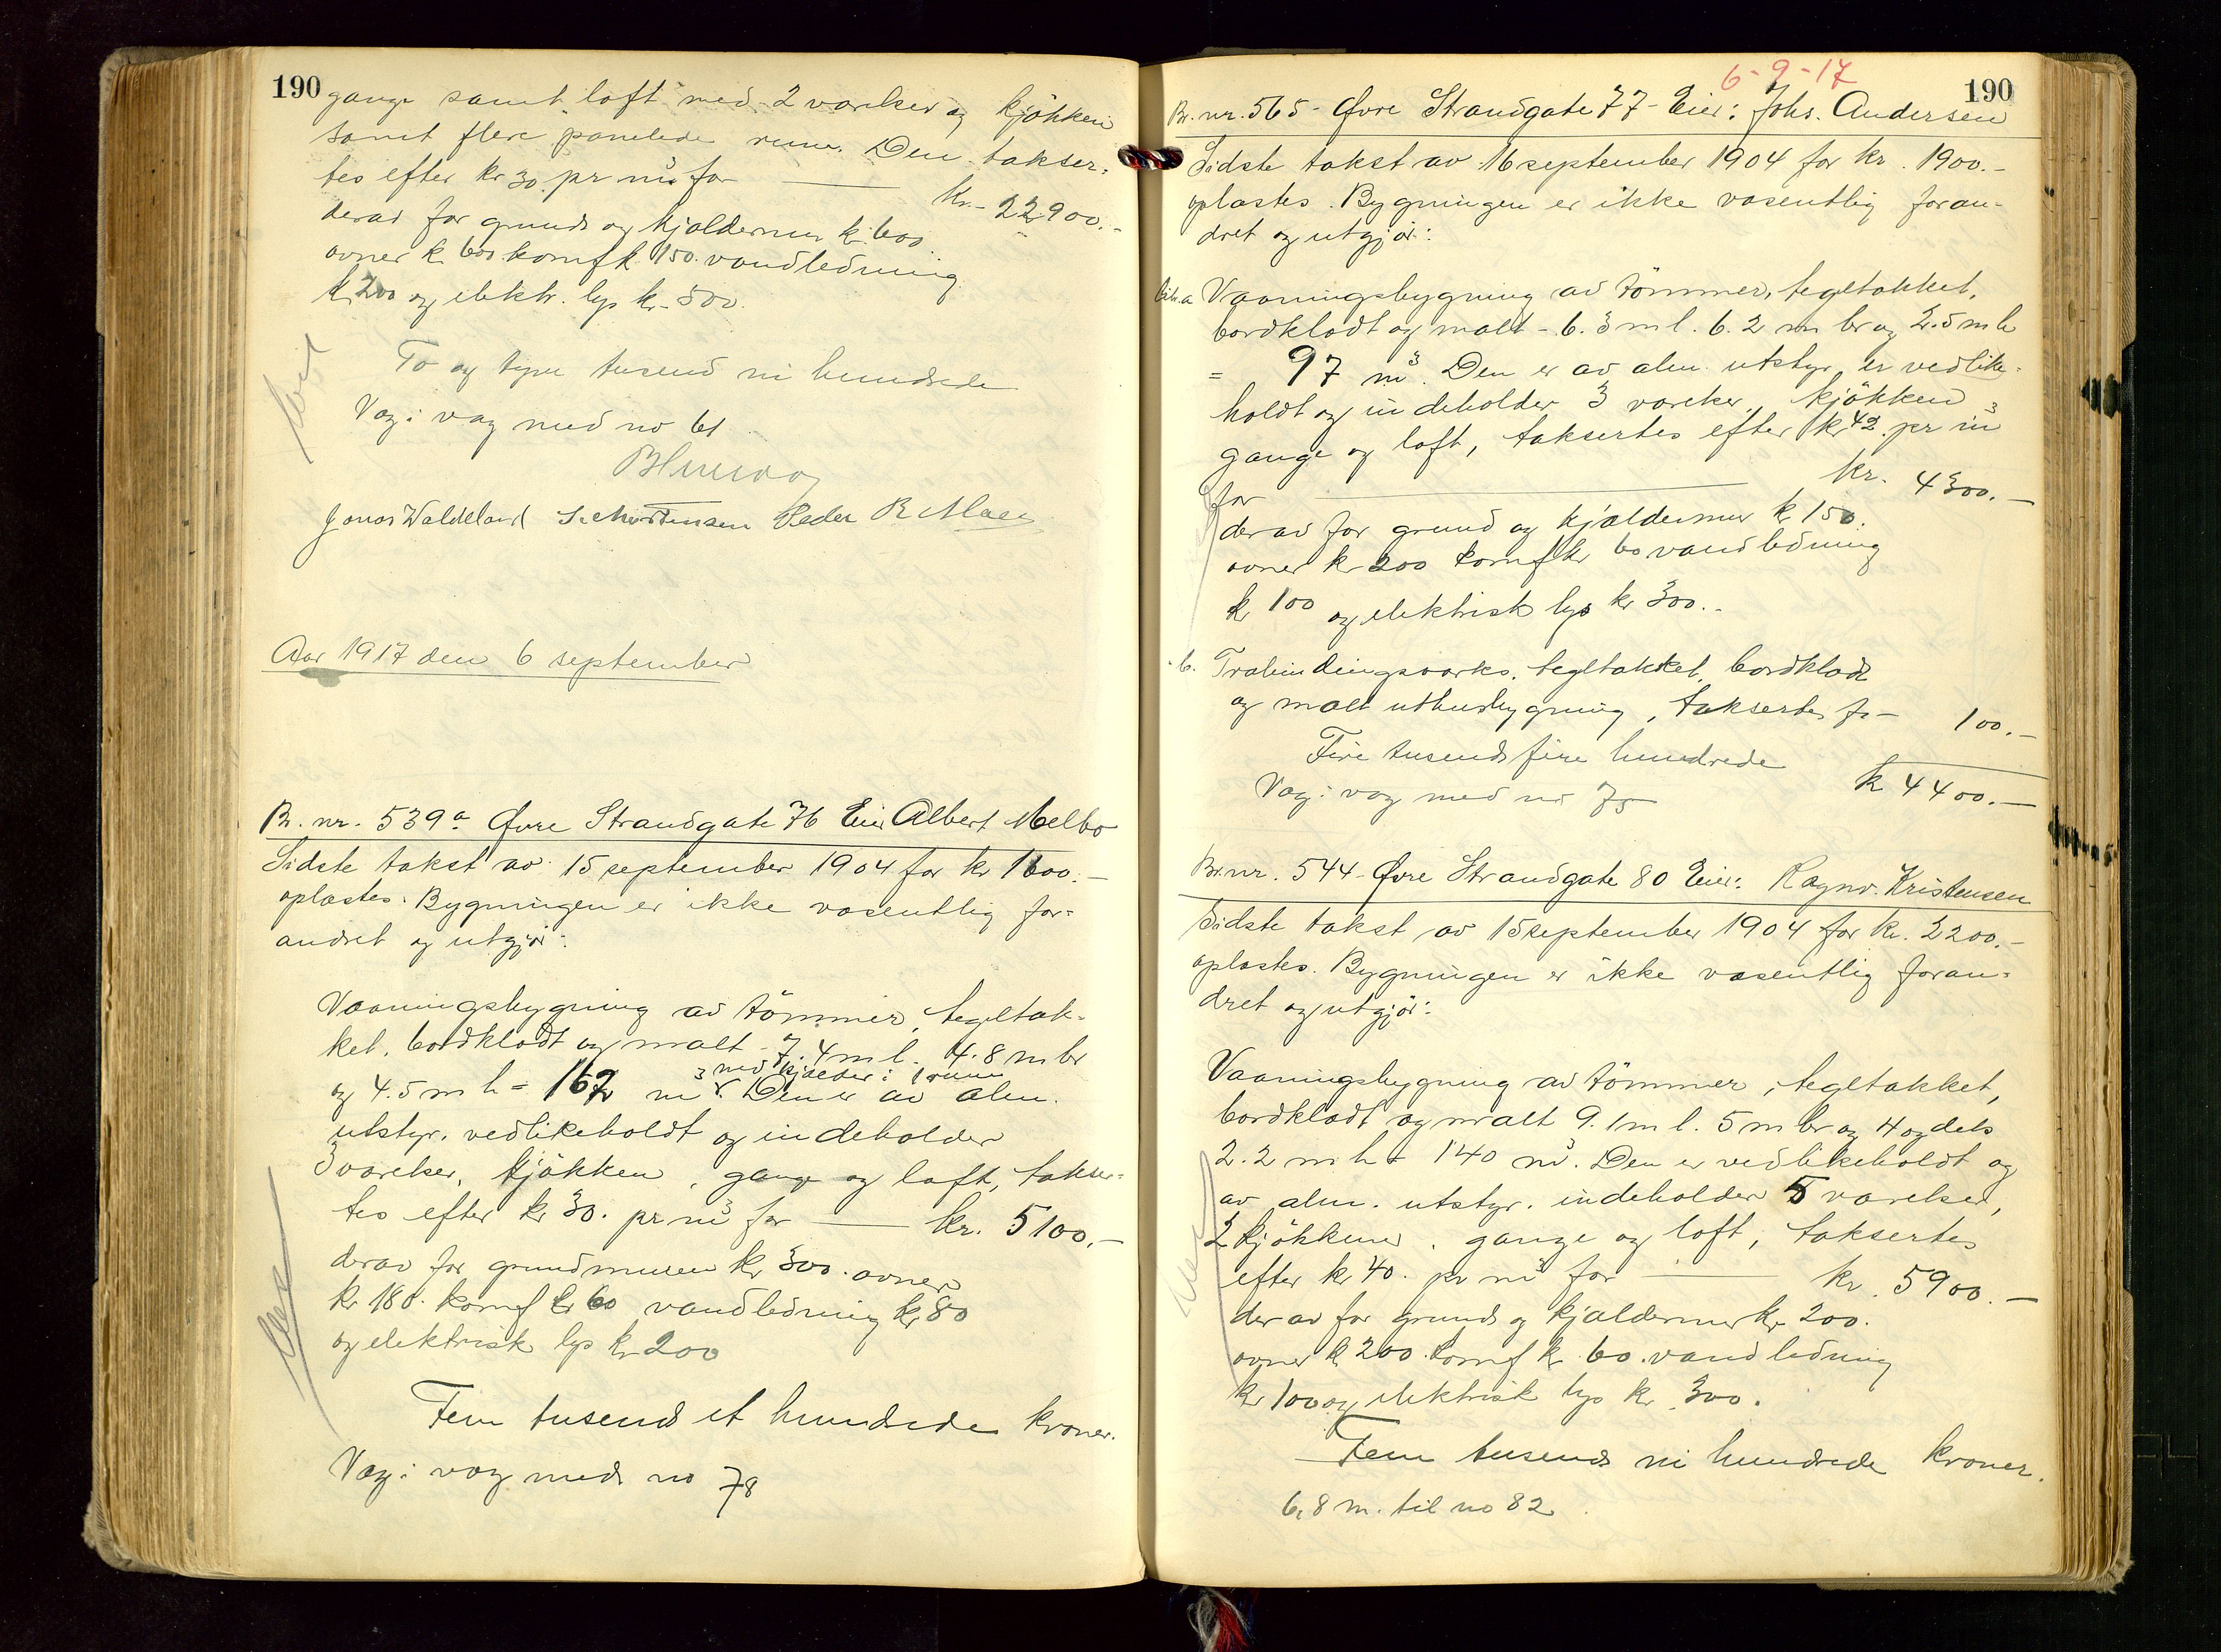 190
gange samt loft med 2 værelser og kjøkken
samt flere panelede rum. Den takser-
tes efter kr 30. pr m³ for — kr. 22900.-
derav for grund og kjældermur kr. 600
ovner kr 600 komf k 150. vandledning
k 200 og elektr. lys kr. 500.
To og tyve tusend ni hundrede
Væg i væg med no 61
Jonas Waldeland S. Mortensen Peder R
Aar 1917 den 6 september
Br. nr. 539a Øvre Strandgate 76 Eier Albert Melbo
Sidste takst av 15 september 1904 for kr 1600.-
oplæstes. Bygningen er ikke væsentlig for-
andret og utgjør:
Vaaningsbygning av tömmer, tegltak-
ket, bordklædt og malt - 7.4 m l. 4.8 m br
med kjelder i 1 rum
og 4.5 m h = 162 m³. Den er av alm.
utstyr, vedlikeholdt og indeholder
3 værelser, kjökken, gange og loft, takser-
tes efter kr 30. pr m³ for — kr. 5100.-
derav for grundmuren kr 300. ovner
kr 180. komf kr 60 vandledning kr 80
og elektrisk lys kr 200
Fem tusend et hundrede kroner.
Væg i væg med no 78
6-9-17
190
Br. nr. 565 - Øvre Strandgate 77 - Eier: Johs. Andersen
Sidste takst av 16 september 1904 for kr. 1900.-
oplæstes. Bygningen er ikke væsentlig foran-
dret og utgjör:
Litr. a. Vaaningsbygning av tömmer, tegltækket,
bordklædt og malt - 6.3 m l. 6.2 m br og 2.5 m h
= 97 m³. Den er av alm. utstyr, er vedlike-
holdt og indeholder 3 værelser, kjökken
gange og loft, taksertes efter kr 42. pr m³
for — kr. 4300.-
derav for grund og kjældermur kr 150.
ovner kr 200 komf kr 60 vandledning
kr 100 og elektrisk lys kr 300.-
- b. Træbindingsværks, tegltækket, bordklædt
og malt uthusbygning, taksertes for - 100.-
Fire tusend fire hundrede k 4400.-
Væg i væg med no 75
Br. nr. 544 - Øvre Strandgate 80 Eier: Ragnv. Kristensen
Sidste takst av 15 september 1904 for kr. 2200.-
oplæstes. Bygningen er ikke væsentlig foran-
dret og utgjör:
Vaaningsbygning av tömmer, tegltækket,
bordklædt og malt 9.1 m l. 5 m br og 4 og dels
2.2 m h = 140 m³. Den er vedlikeholdt og
av alm. utstyr, indeholder 5 værelser,
2 kjökkener, gange og loft, taksertes
efter kr 40. pr m³ for — kr. 5900.-
derav for grund og kjældermur kr 200.
ovner kr 200. komf kr 60. vandledning
kr 100 og elektrisk lys kr. 300.
Fem tusend ni hundrede kroner.
6,8 m. til no 82.